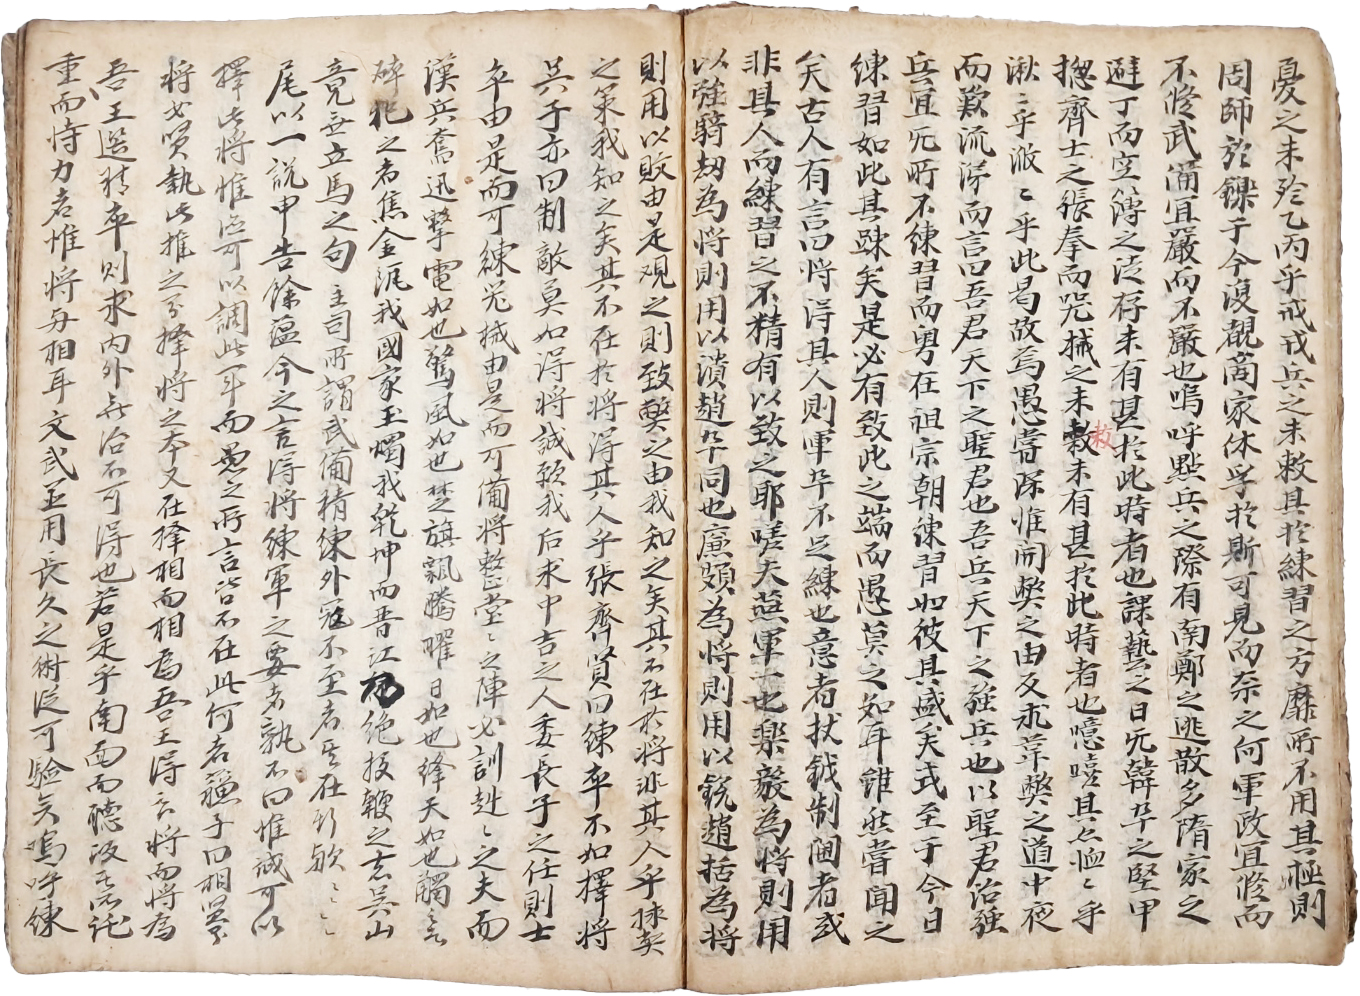 憂之未殄乙丙乎戒戎兵之未敕具於練習之方靡所不用其極則
周師於鑠于今復覩商家休孚於斯可見而奈之何軍政宜修而
不修武備宜嚴而不嚴也嗚呼點兵之際有南鄭之逃散多隋家之
避丁而空簿之泛存未有甚於此時者也課藝之日旡韓卒之堅甲
揔齊士之張拳而兵械之未敕未有甚於此時者也噫嘻其亦恤恤乎
湫湫乎滺滺乎此曷故焉愚嘗深惟開獘之由反求革獘之道中夜
而歎流涕而言曰吾君天下之聖君也吾兵天下之強兵也以聖君治強
兵宜旡所不練習而粤在祖宗朝練習如彼其盛矣式至于今日
練習如此其踈矣是必有致此之端而愚莫之知耳雖然嘗聞之
矣古人有言曰將得其人則軍卒不足練也意者杖鉞制閫者或
非其人而練習之不精有以致之耶嗟夫燕軍一也樂毅為將則用
以強騎劫為將則用以潰趙卒同也廉頗為將則用以銳趙括為將
則用以敗由是觀之則致獘之由我知之矣其不在於將非其人乎捄獘
之策我知之矣其不在於將得其人乎張齊賢曰練卒不如擇將
吳子亦曰制敵莫如得將誠願我后求中吉之人委長子之任則士
卒由是而可練兵械由是而可備將整堂堂之陣必訓赳赳之夫而
漢兵奮迅擊電如也驚風如也楚旗飄騰曜日如也絳天如也觸之
碎犯之者焦金湎我國家玉燭我乾坤而晋江絶投鞭之志吳山
竟無立馬之句主司所謂武備精練外冦不至者其在斯歟
尾以一說申告餘蘊今之言得將練軍之要者孰不曰惟誠可以
擇此將惟信可以調此軍而愚之所言皆不在此何者蘓子曰相
將如賢孰此推之乎擇將之本又在擇相而相為吾王得其將而將為
吾王選精卒則求內外無治不可得也若是乎南面而聽政無託
重而恃力者惟將与相耳文武並用長久之術從可驗矣嗚呼練